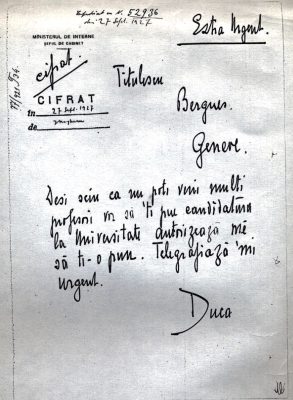 Expediat cu N. 52936
27 Sept. 1927
Extra Urgent.
MINISTERUL DE INTERNE
ȘEFUL DE CABINET
cifrat
CIFRAT
in 27 Sept. 1927
de
Titulescu
Bergues.
Geneve.
Desi sciu ca nu poti veni multi
profesori vor să 'ti pue candidatura
la Universitate autorizează mé
să ti-o pun. Telegrafiază 'mi
urgent.
Duca